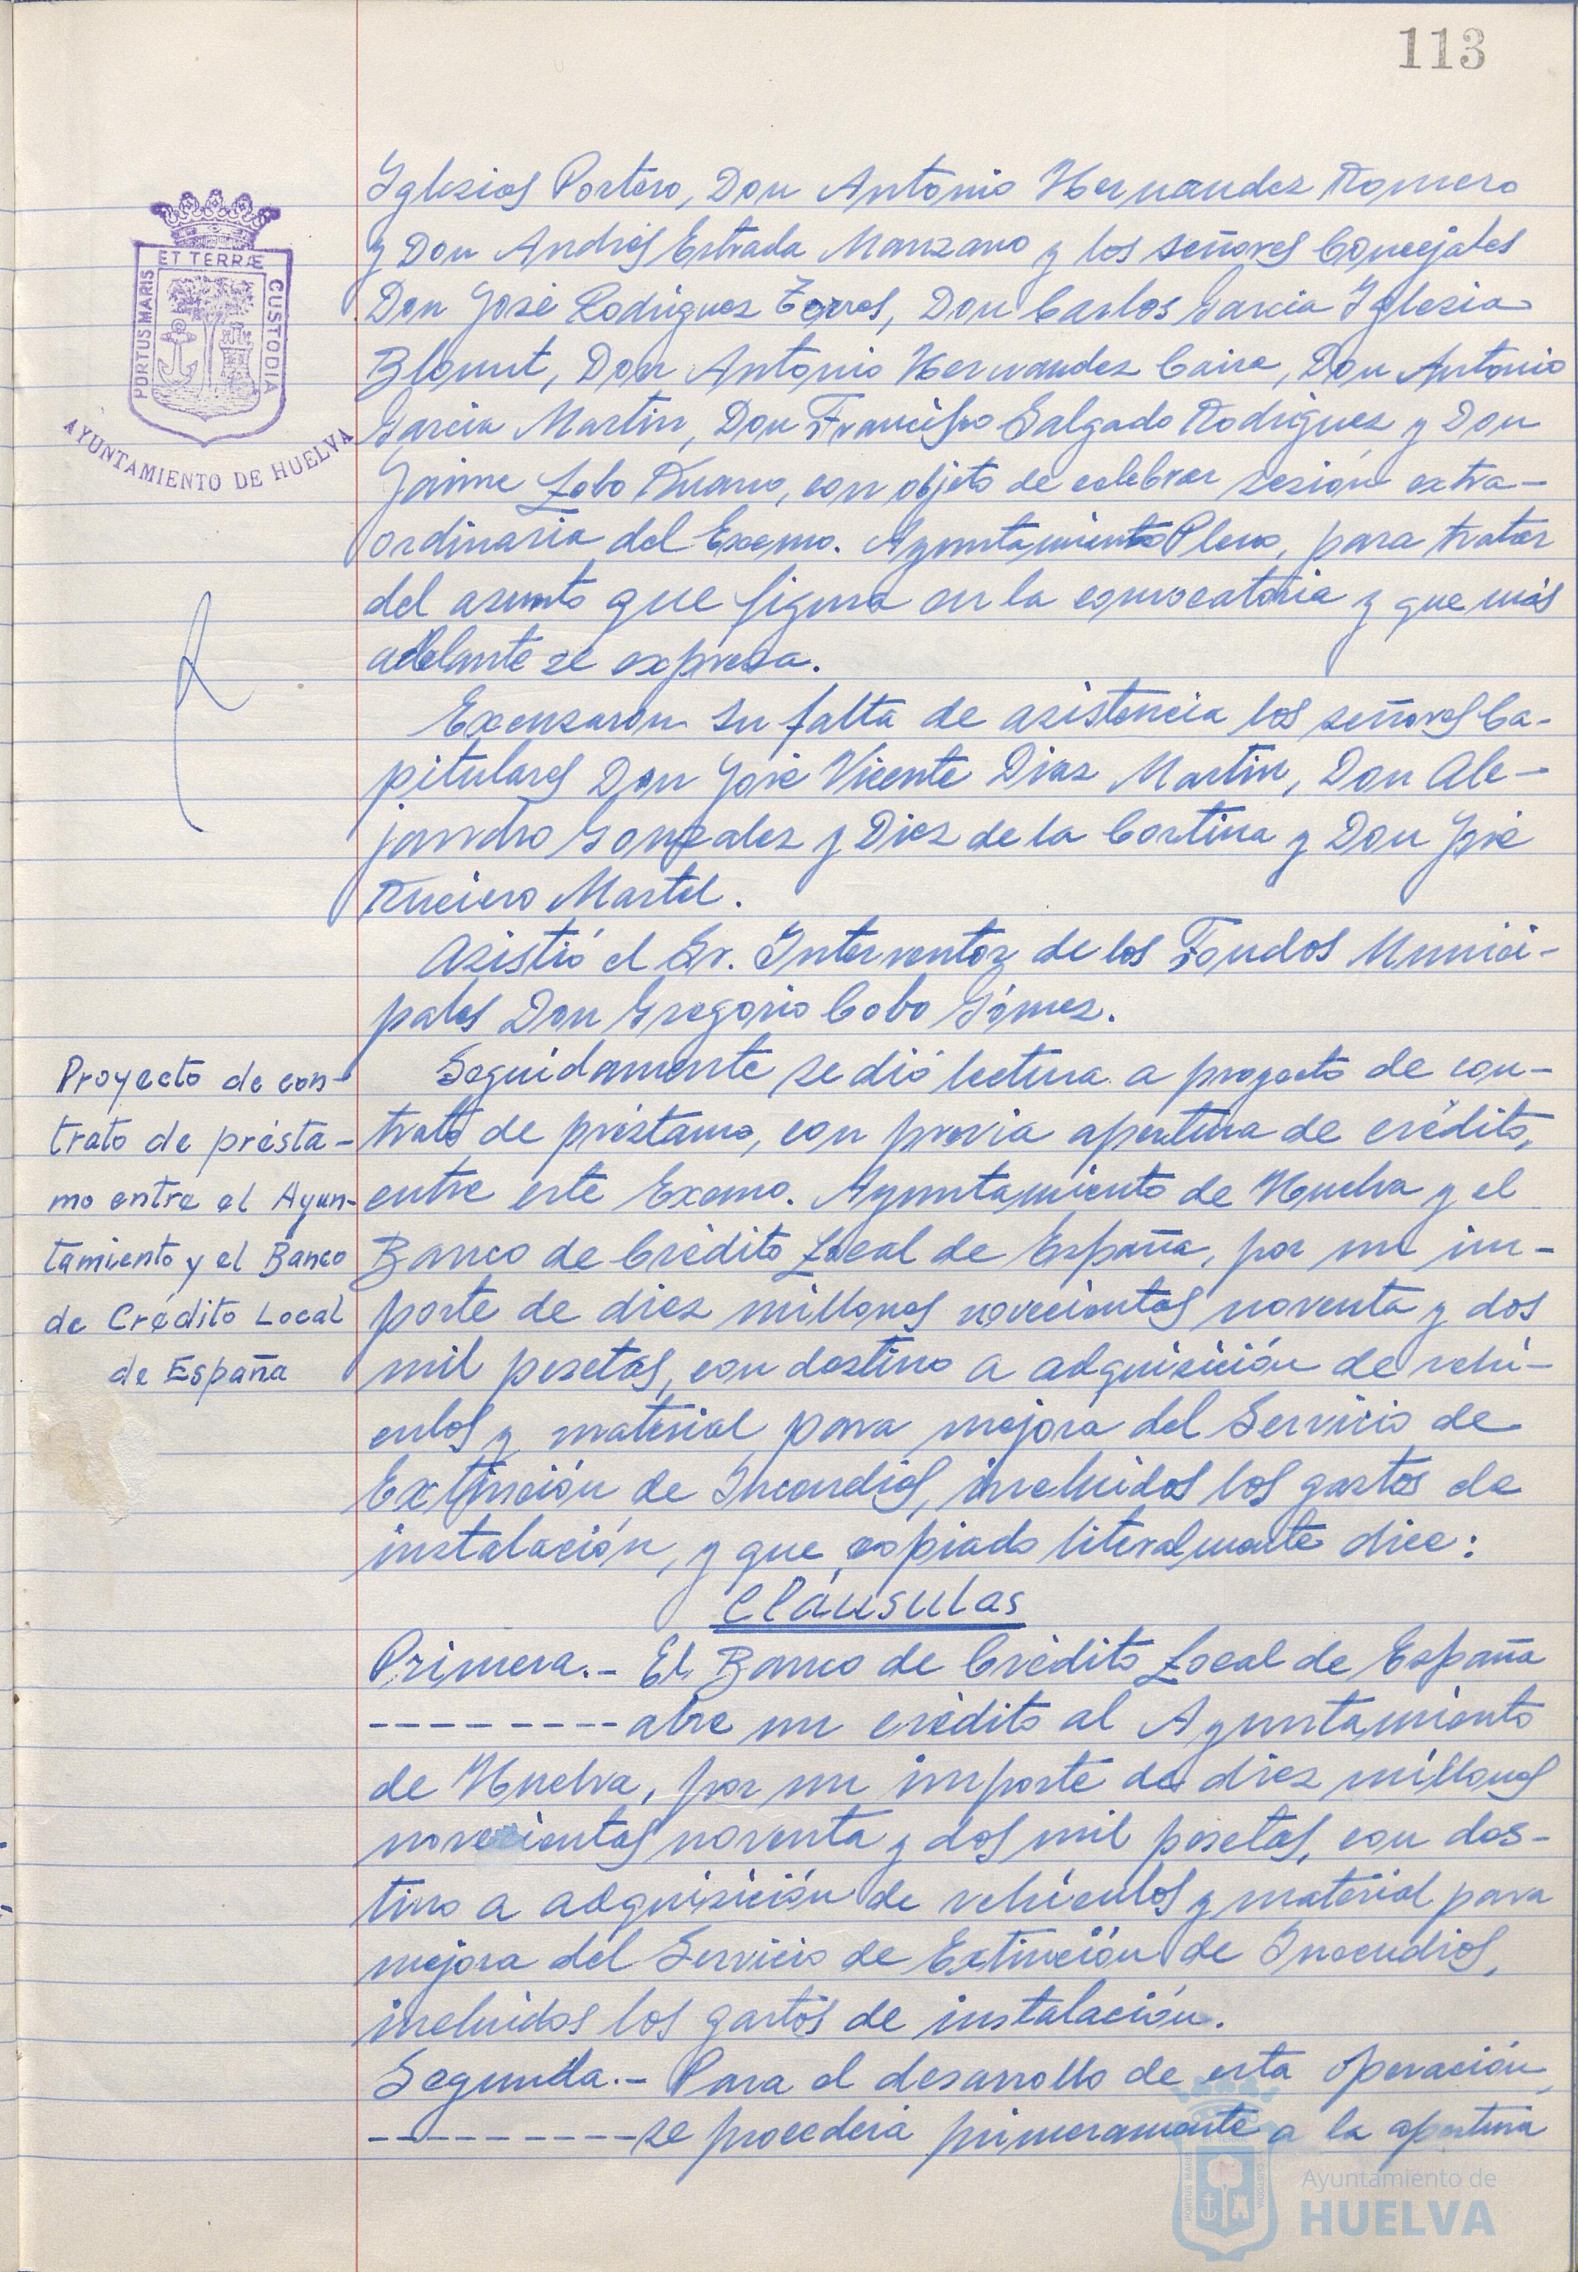 113
Iglesias Portero, Don Antonio Hernandez Romero
y Don Andrés Estrada Manzano y los señores Concejales
Don José Rodriguez Torres, Don Carlos Garcia Iglesias
Blount, Don Antonio Hernandez Caire, Don Antonio
Garcia Martin, Don Francisco Salgado Rodriguez y Don
Jaime Lobo, con objeto de celebrar sesión extra-
ordinaria del Excmo. Ayuntamiento Pleno, para tratar
del asunto que figura en la convocatoria y que más
adelante se expresa.
Excusaron su falta de asistencia los señores Ca-
pitulares Don José Vicente Diaz Martin, Don Ale-
jandro Gonzalez y Diez de la Cortina y Don José
Ruciero Martel.
Asistió el Sr. Interventor de los Fondos Munici-
pales Don Gregorio Cobo Gómez.
Proyecto de con-
trato de présta-
mo entre el Ayun-
tamiento y el Banco
de Crédito Local
de España
Seguidamente se dió lectura a proyecto de con-
trato de préstamo, con previa apertura de crédito,
entre este Excmo. Ayuntamiento de Huelva y el
Banco de Crédito Local de España, por un im-
porte de diez millones novecientas noventa y dos
mil pesetas, con destino a adquisición de vehi-
culos y material para mejora del Servicio de
Extinción de Incendios, incluidos los gastos de
instalación, y que copiado literalmente dice:
Cláusulas
Primera.- El Banco de Crédito Local de España
--------- abre un crédito al Ayuntamiento
de Huelva, por un importe de diez millones
novecientas noventa y dos mil pesetas, con des-
tino a adquisición de vehículos y material para
mejora del Servicio de Extinción de Incendios,
incluidos los gastos de instalación.
Segunda.- Para el desarrollo de esta operación,
--------- se procederá primeramente a la apertura
PORTUS MARIS
ET TERRÆ
CUSTODIA
AYUNTAMIENTO DE HUELVA
Ayuntamiento de
HUELVA